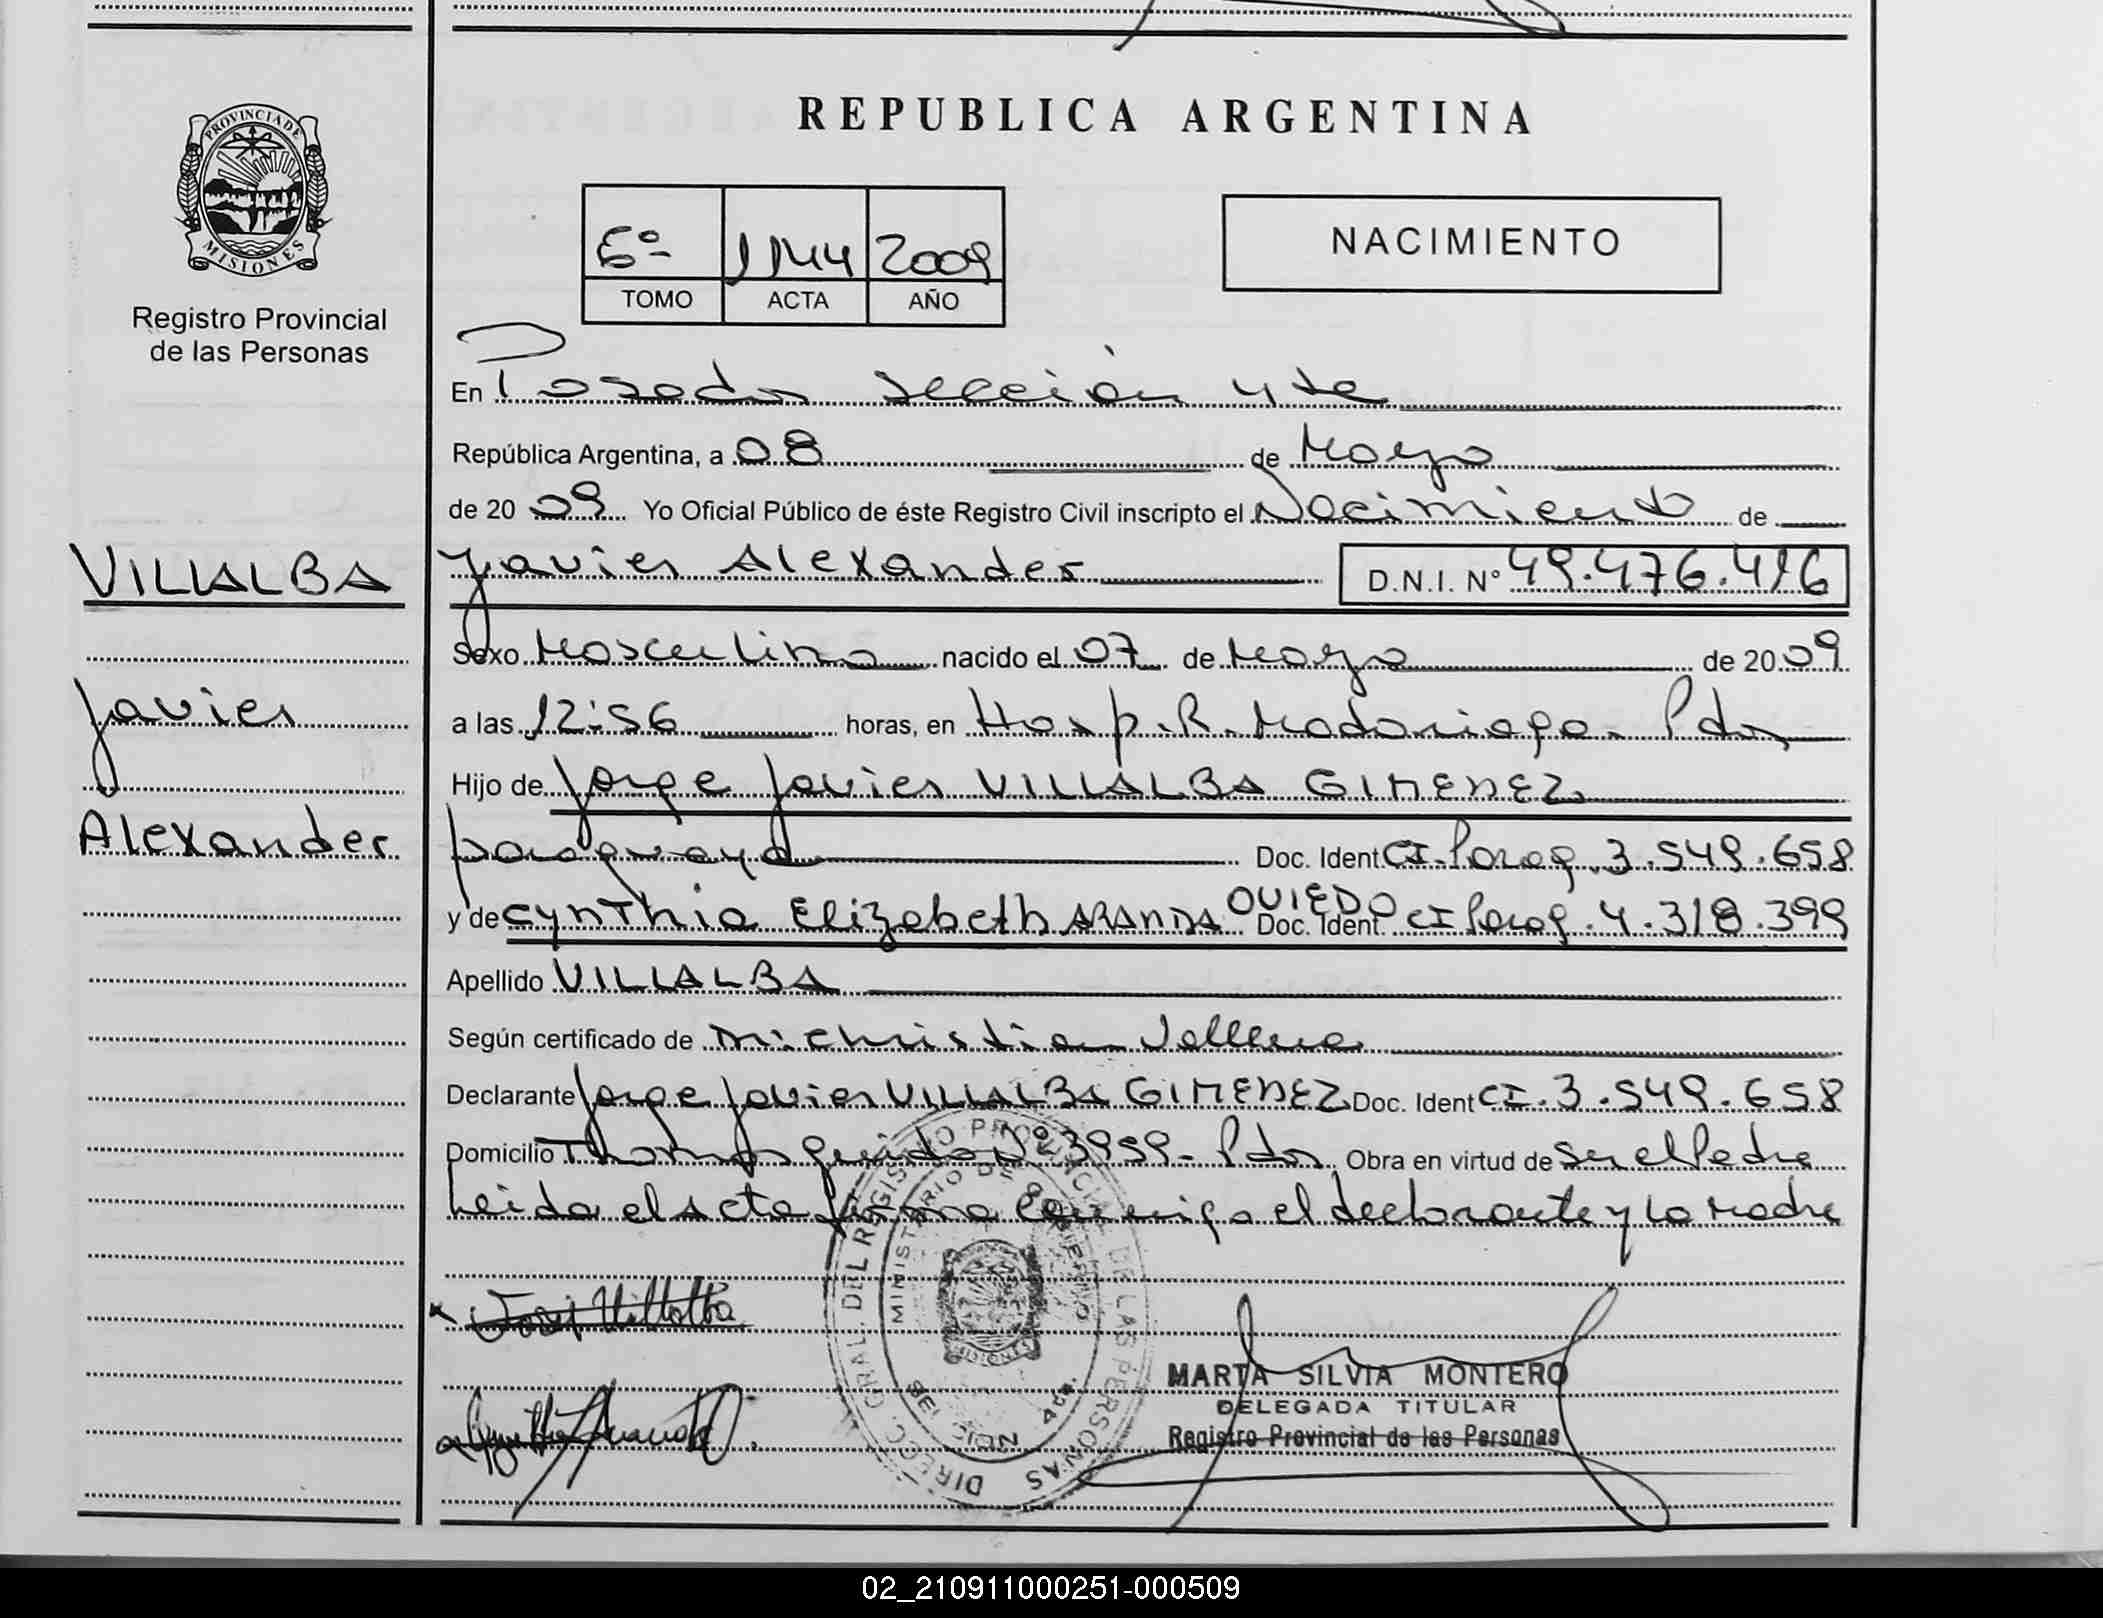 REPUBLICA ARGENTINA
PROVINCIA DE
MISIONES
Registro Provincial
de las Personas
6º 1144 2009
TOMO ACTA AÑO
NACIMIENTO
En Posadas Sección 4ta
República Argentina, a 08 de Mayo
de 20 09 Yo Oficial Público de éste Registro Civil inscripto el Nacimiento de
VILLALBA
Javier
Alexander
Javier Alexander D.N.I. Nº 49.476.416
Sexo Masculino nacido el 07 de Mayo de 20 09
a las 12:56 horas, en Hosp. R. Madariaga. Pdas
Hijo de Jorge Javier VILLALBA GIMENEZ
paraguaya Doc. Ident CI. Parag. 3.549.658
y de Cynthia Elizabeth ARANDA OVIEDO Doc. Ident CI Parag. 4.318.399
Apellido VILLALBA
Según certificado de Christian
Declarante Jorge Javier VILLALBA GIMENEZ Doc. Ident CI. 3.549.658
Domicilio Thomas guido Nº 3959- Pdas Obra en virtud de Ser el Padre
Leida el acta firma conmigo el declarante y la Madre
DIRECC. GRAL. DEL REGISTRO PROVINCIAL DE LAS PERSONAS
MINISTERIO DE GOBIERNO
MISIONES
SECCION 4ta.
MARTA SILVIA MONTERO
DELEGADA TITULAR
Registro Provincial de las Personas
02_210911000251-000509